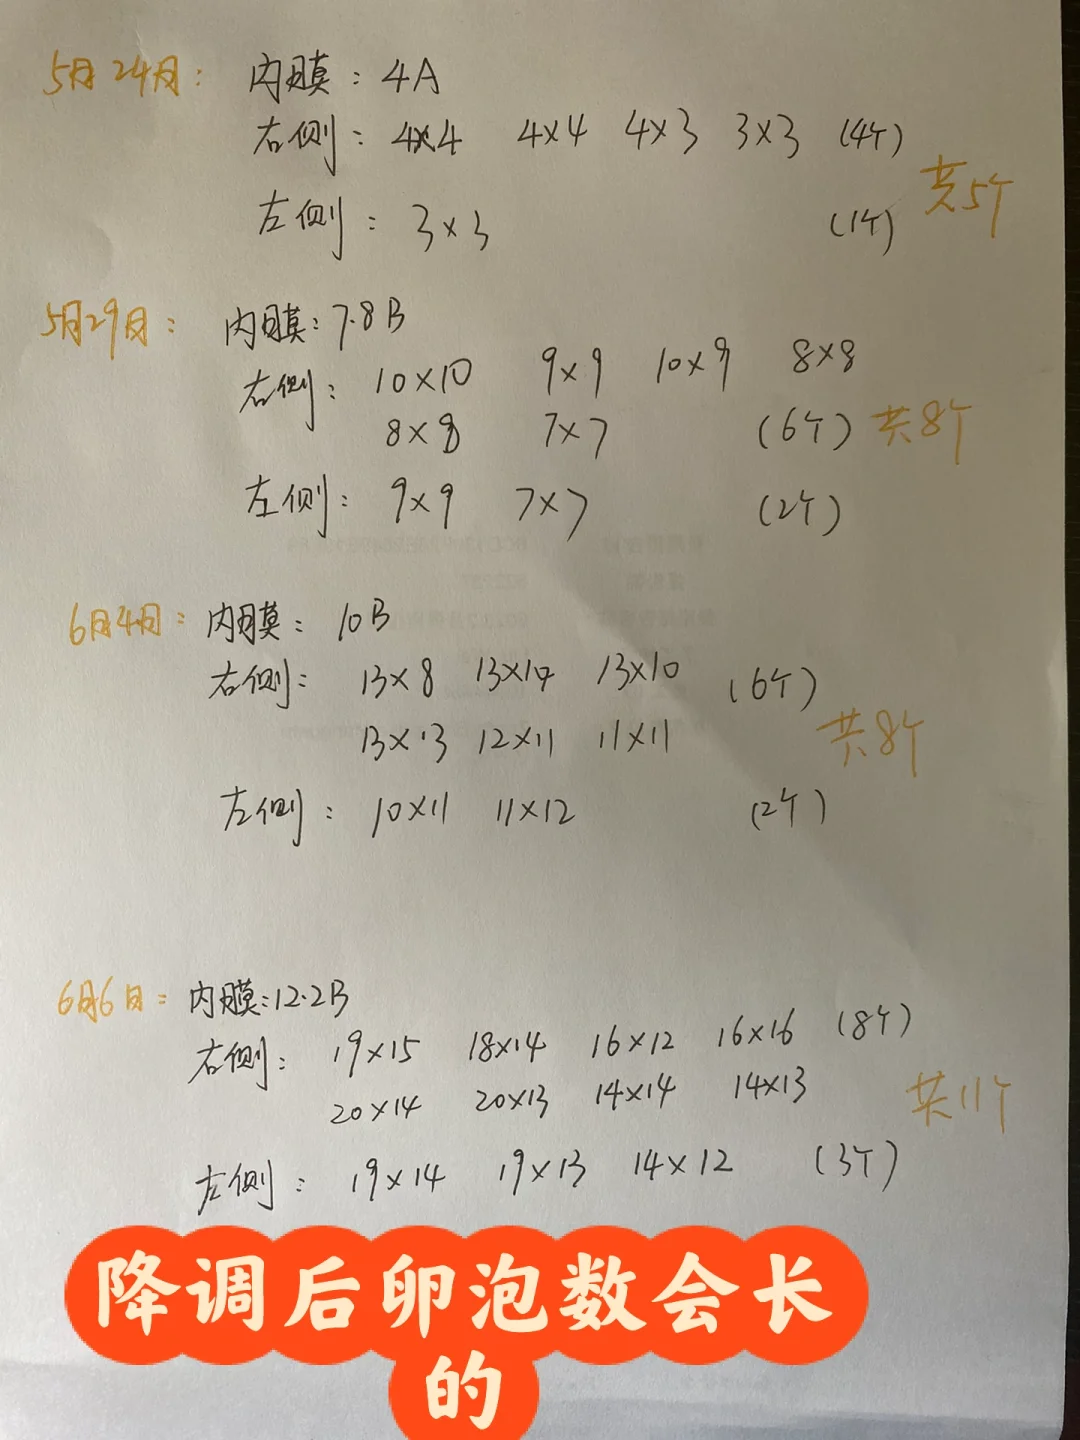 5月24日: 内膜: 4A
右侧: 4×4 4×4 4×3 3×3 (4个)
共5个
左侧: 3×3 (1个)
5月29日: 内膜: 7.8B
右侧: 10×10 9×9 10×9 8×8
8×8 7×7 (6个) 共8个
左侧: 9×9 7×7 (2个)
6月4日: 内膜: 10B
右侧: 13×8 13×10 (6个)
13×13 12×11 11×11
共8个
左侧: 10×11 11×12 (2个)
6月6日: 内膜:12.2B
右侧: 19×15 18×14 16×12 16×16 (8个)
20×14 20×13 14×14 14×13
共11个
左侧: 19×14 19×13 14×12 (3个)
降调后卵泡数会长
的